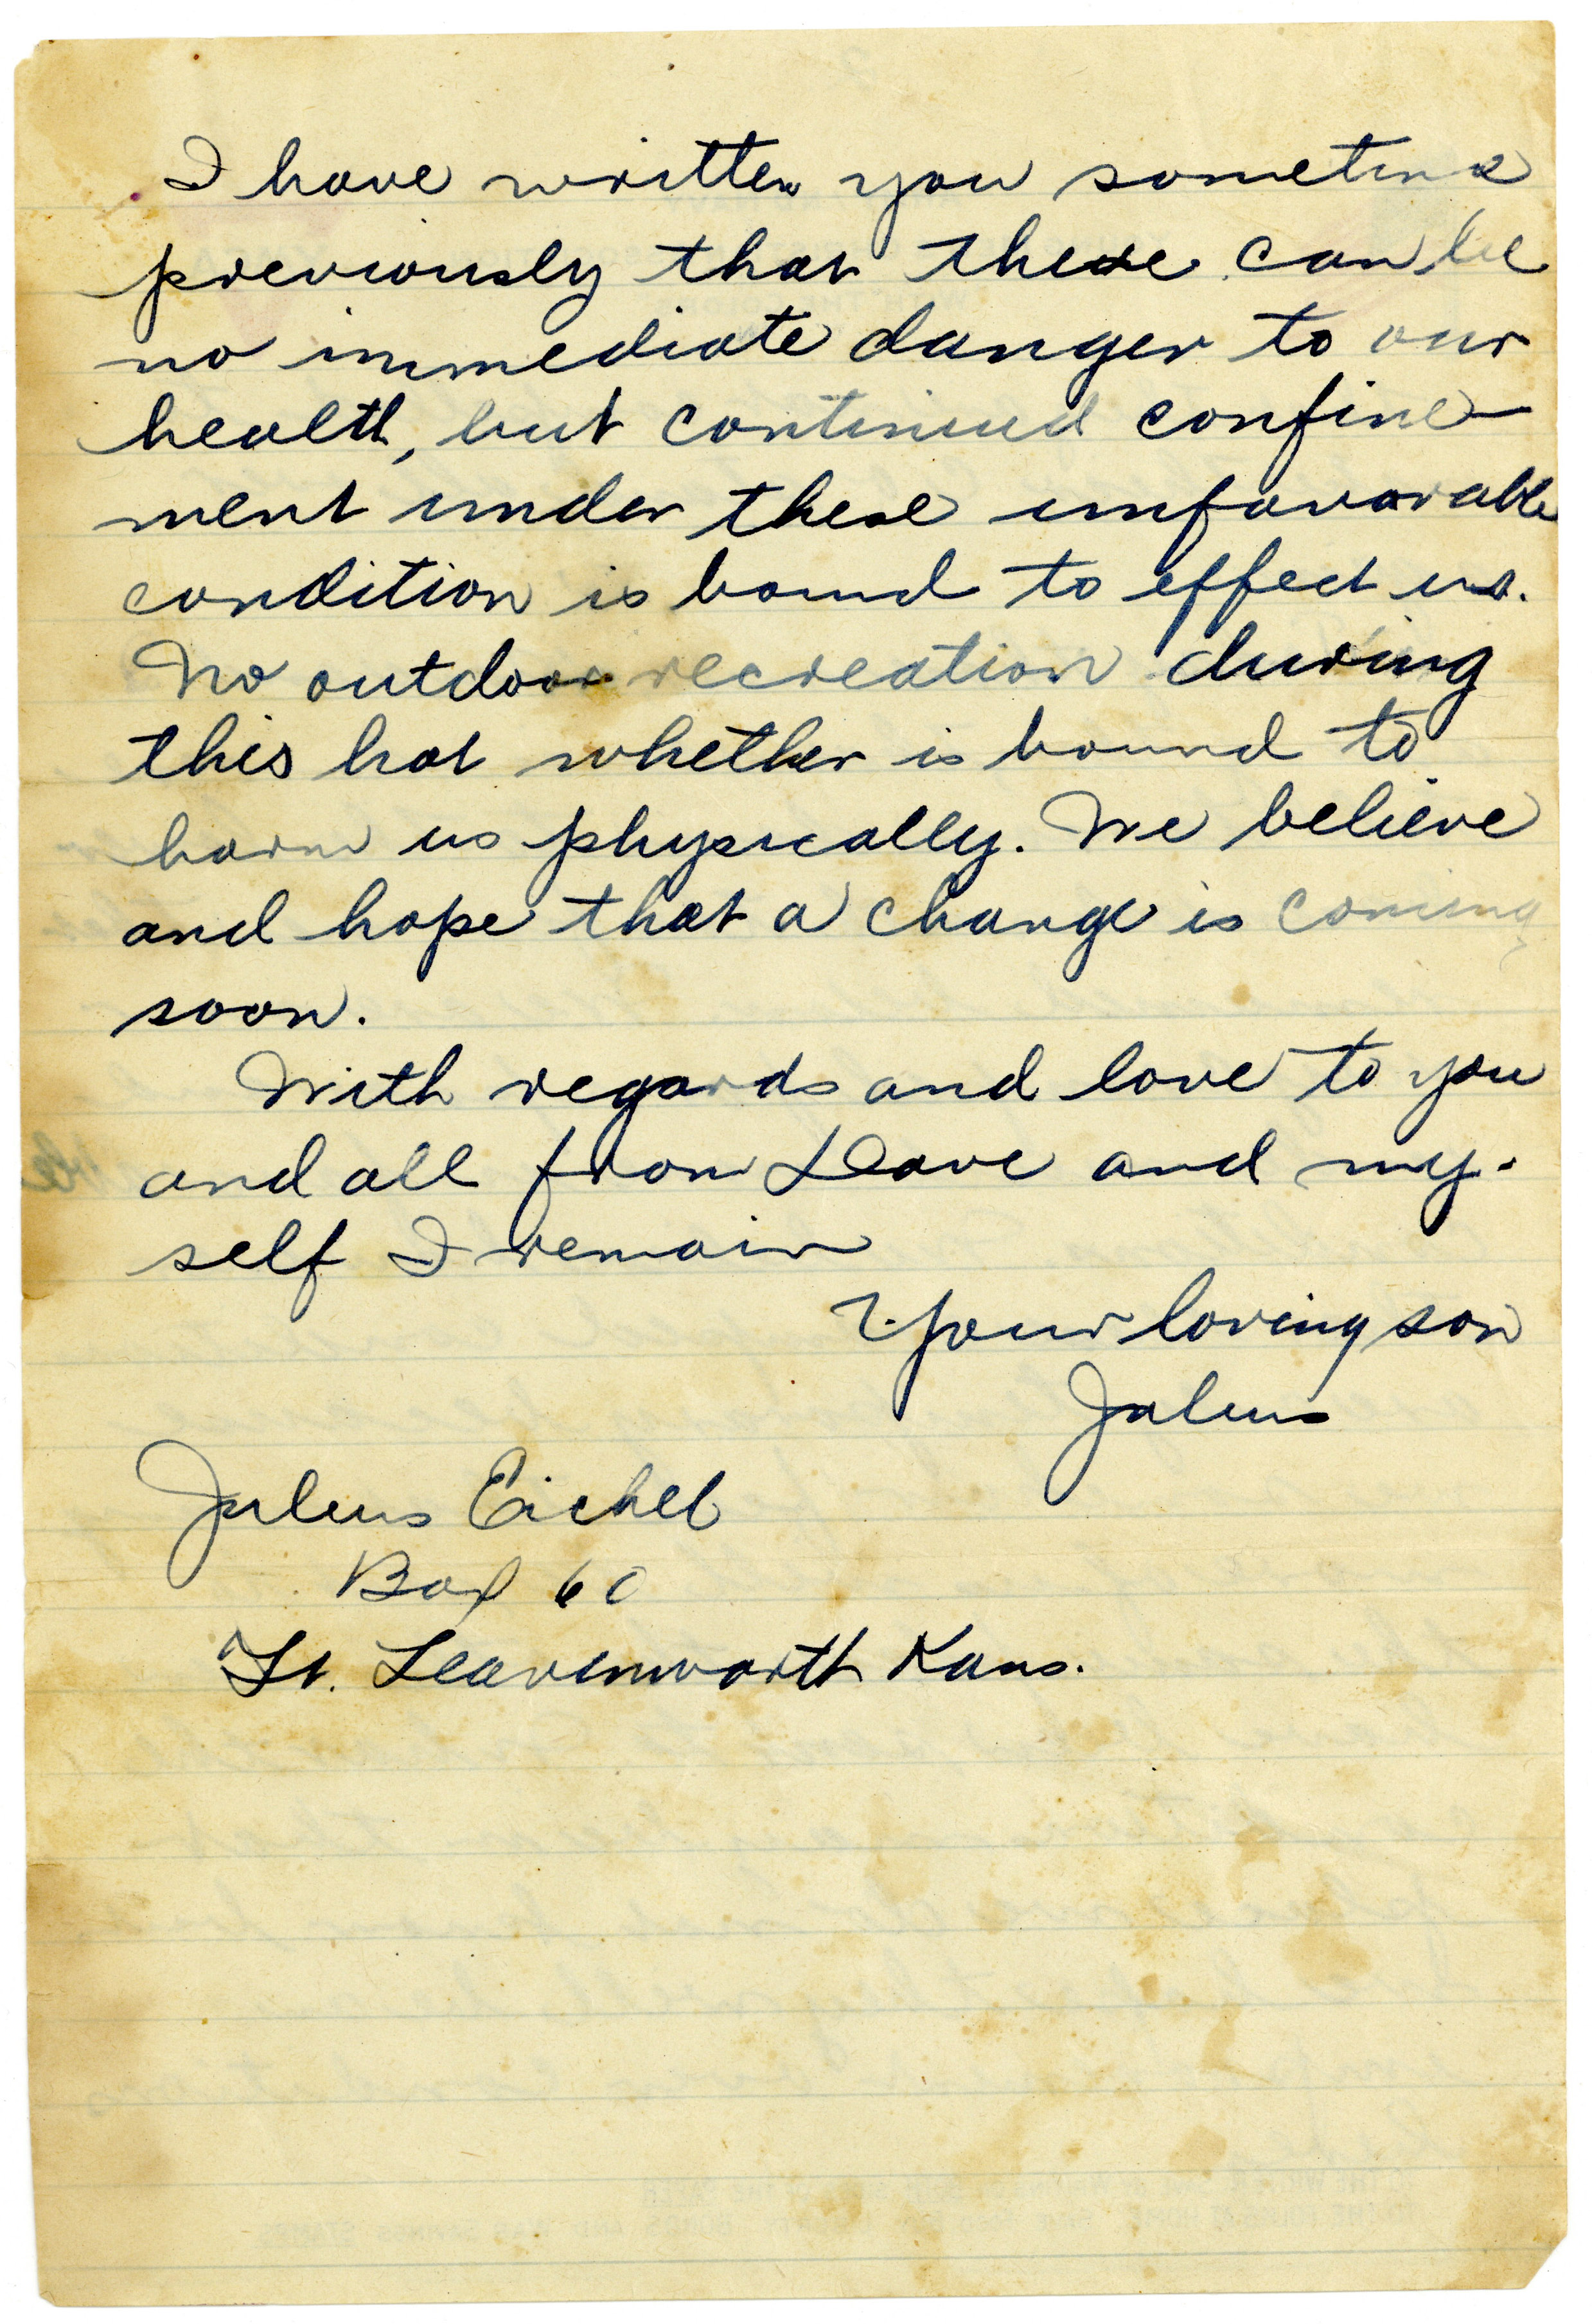 I have written you sometime
previously that there can be
no immediate danger to our
health, but continued confine-
ment under these unfavorable
condition is bound to effect us.
No outdoor recreation during
this hot whether is bound to
harm us physically. We believe
and hope that a change is coming
soon.
With regards and love to you
and all from Dave and my-
self I remain
Your loving son
Julius
Julius Eichel
Box 60
Ft. Leavenworth Kans.